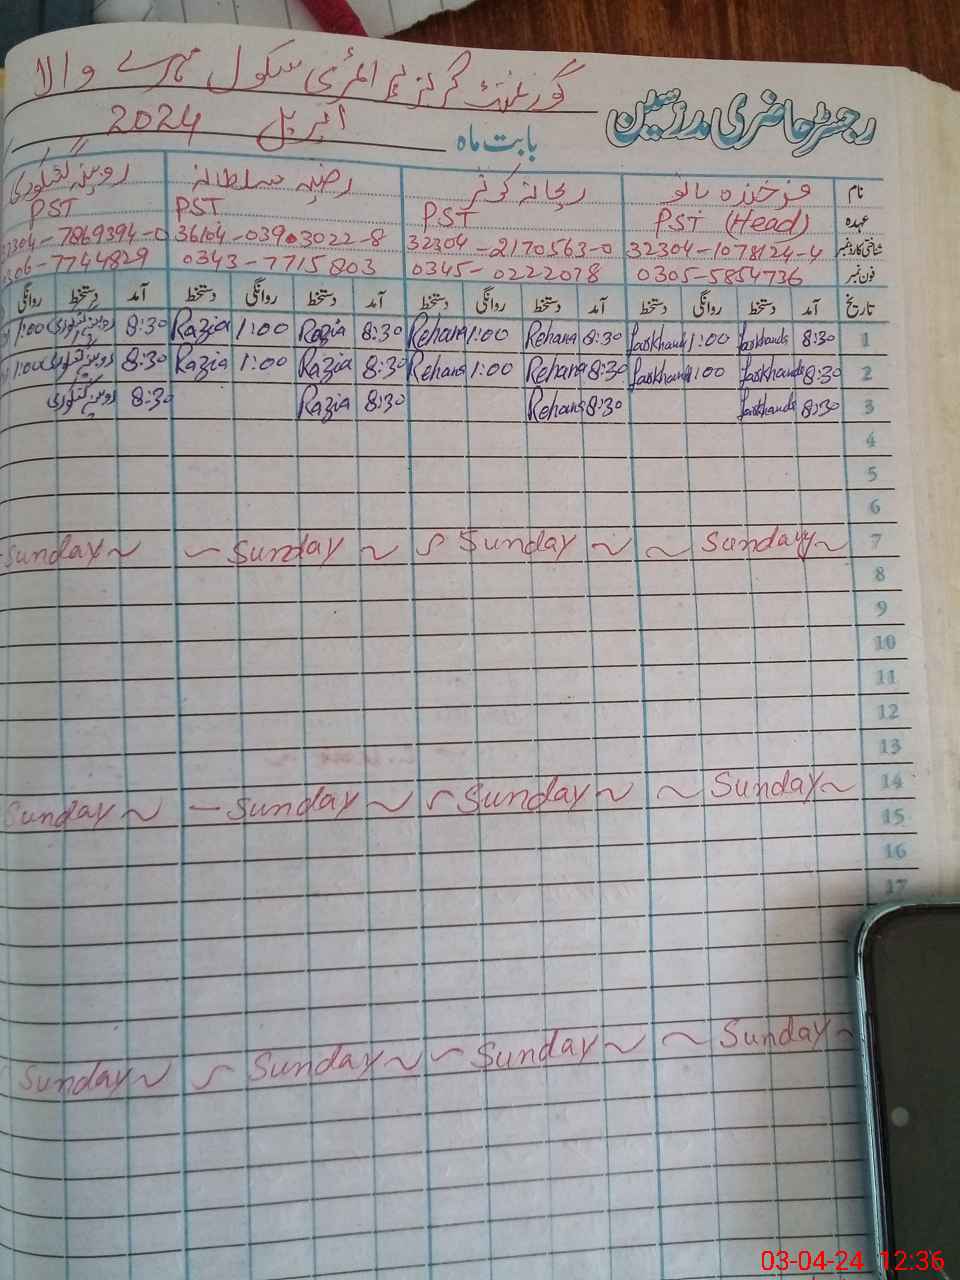 گورنمنٹ گرلز پرائمری سکول مہرے والا
رجسٹر حاضری مدرسین
بابت ماہ اپریل 2024
نام فرخندہ بانو ریحانہ کوثر رضیہ سلطانہ روبینہ
عہدہ PST (Head) PST PST PST
شناختی کارڈ نمبر 32304-1078124-4 32304-2170563-0 36104-03903022-8 32304-7869394-0
فون نمبر 0305-5854736 0345-0222078 0343-7715803 0306-7744829
تاریخ آمد دستخط روانگی دستخط آمد دستخط روانگی دستخط آمد دستخط روانگی دستخط آمد دستخط روانگی
1 8:30 farkhanda 1:00 farkhanda 8:30 Rehana 1:00 Rehana 8:30 Razia 1:00 Razia 8:30 1:00
2 8:30 farkhanda 1:00 farkhanda 8:30 Rehana 1:00 Rehana 8:30 Razia 1:00 Razia 8:30 1:00
3 8:30 farkhanda 8:30 Rehana 8:30 Razia 8:30
4
5
6
7 Sunday Sunday Sunday Sunday
8
9
10
11
12
13
14 Sunday Sunday Sunday Sunday
15
16
17
Sunday Sunday Sunday Sunday
03-04-24 12:36